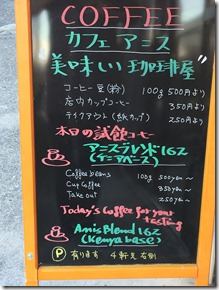 COFFEE
カフェ アニス
美味しい珈琲屋"
コーヒー豆(粉) 100g 500円より
店内カップコーヒー 350円より
テイクアウト(紙カップ) 250円より
本日の試飲コーヒー
アニスブレンド162
(ケニアベース)
Coffee beans 100g 500yen~
Cup Coffee 350yen~
Take out 250yen~
Today's Coffee for your
tasting
Anis Blend 162
(Kenya base)
P 有ります 4軒先右側